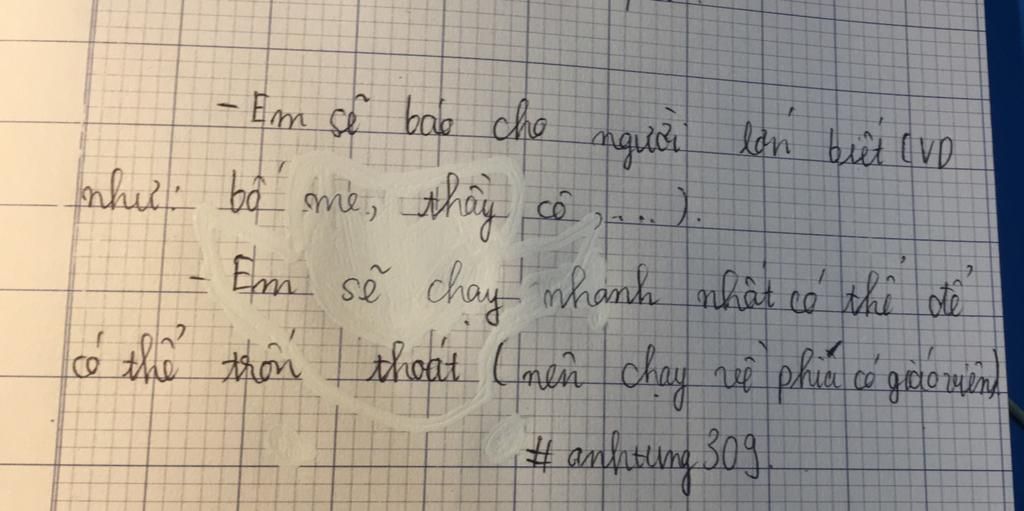 - Em sẽ báo cho người lớn biết (VD
như: bố mẹ, thầy cô,...).
- Em sẽ chạy nhanh nhất có thể để
có thể trốn thoát (nên chạy về phía có giáo viên)
# anhtung309